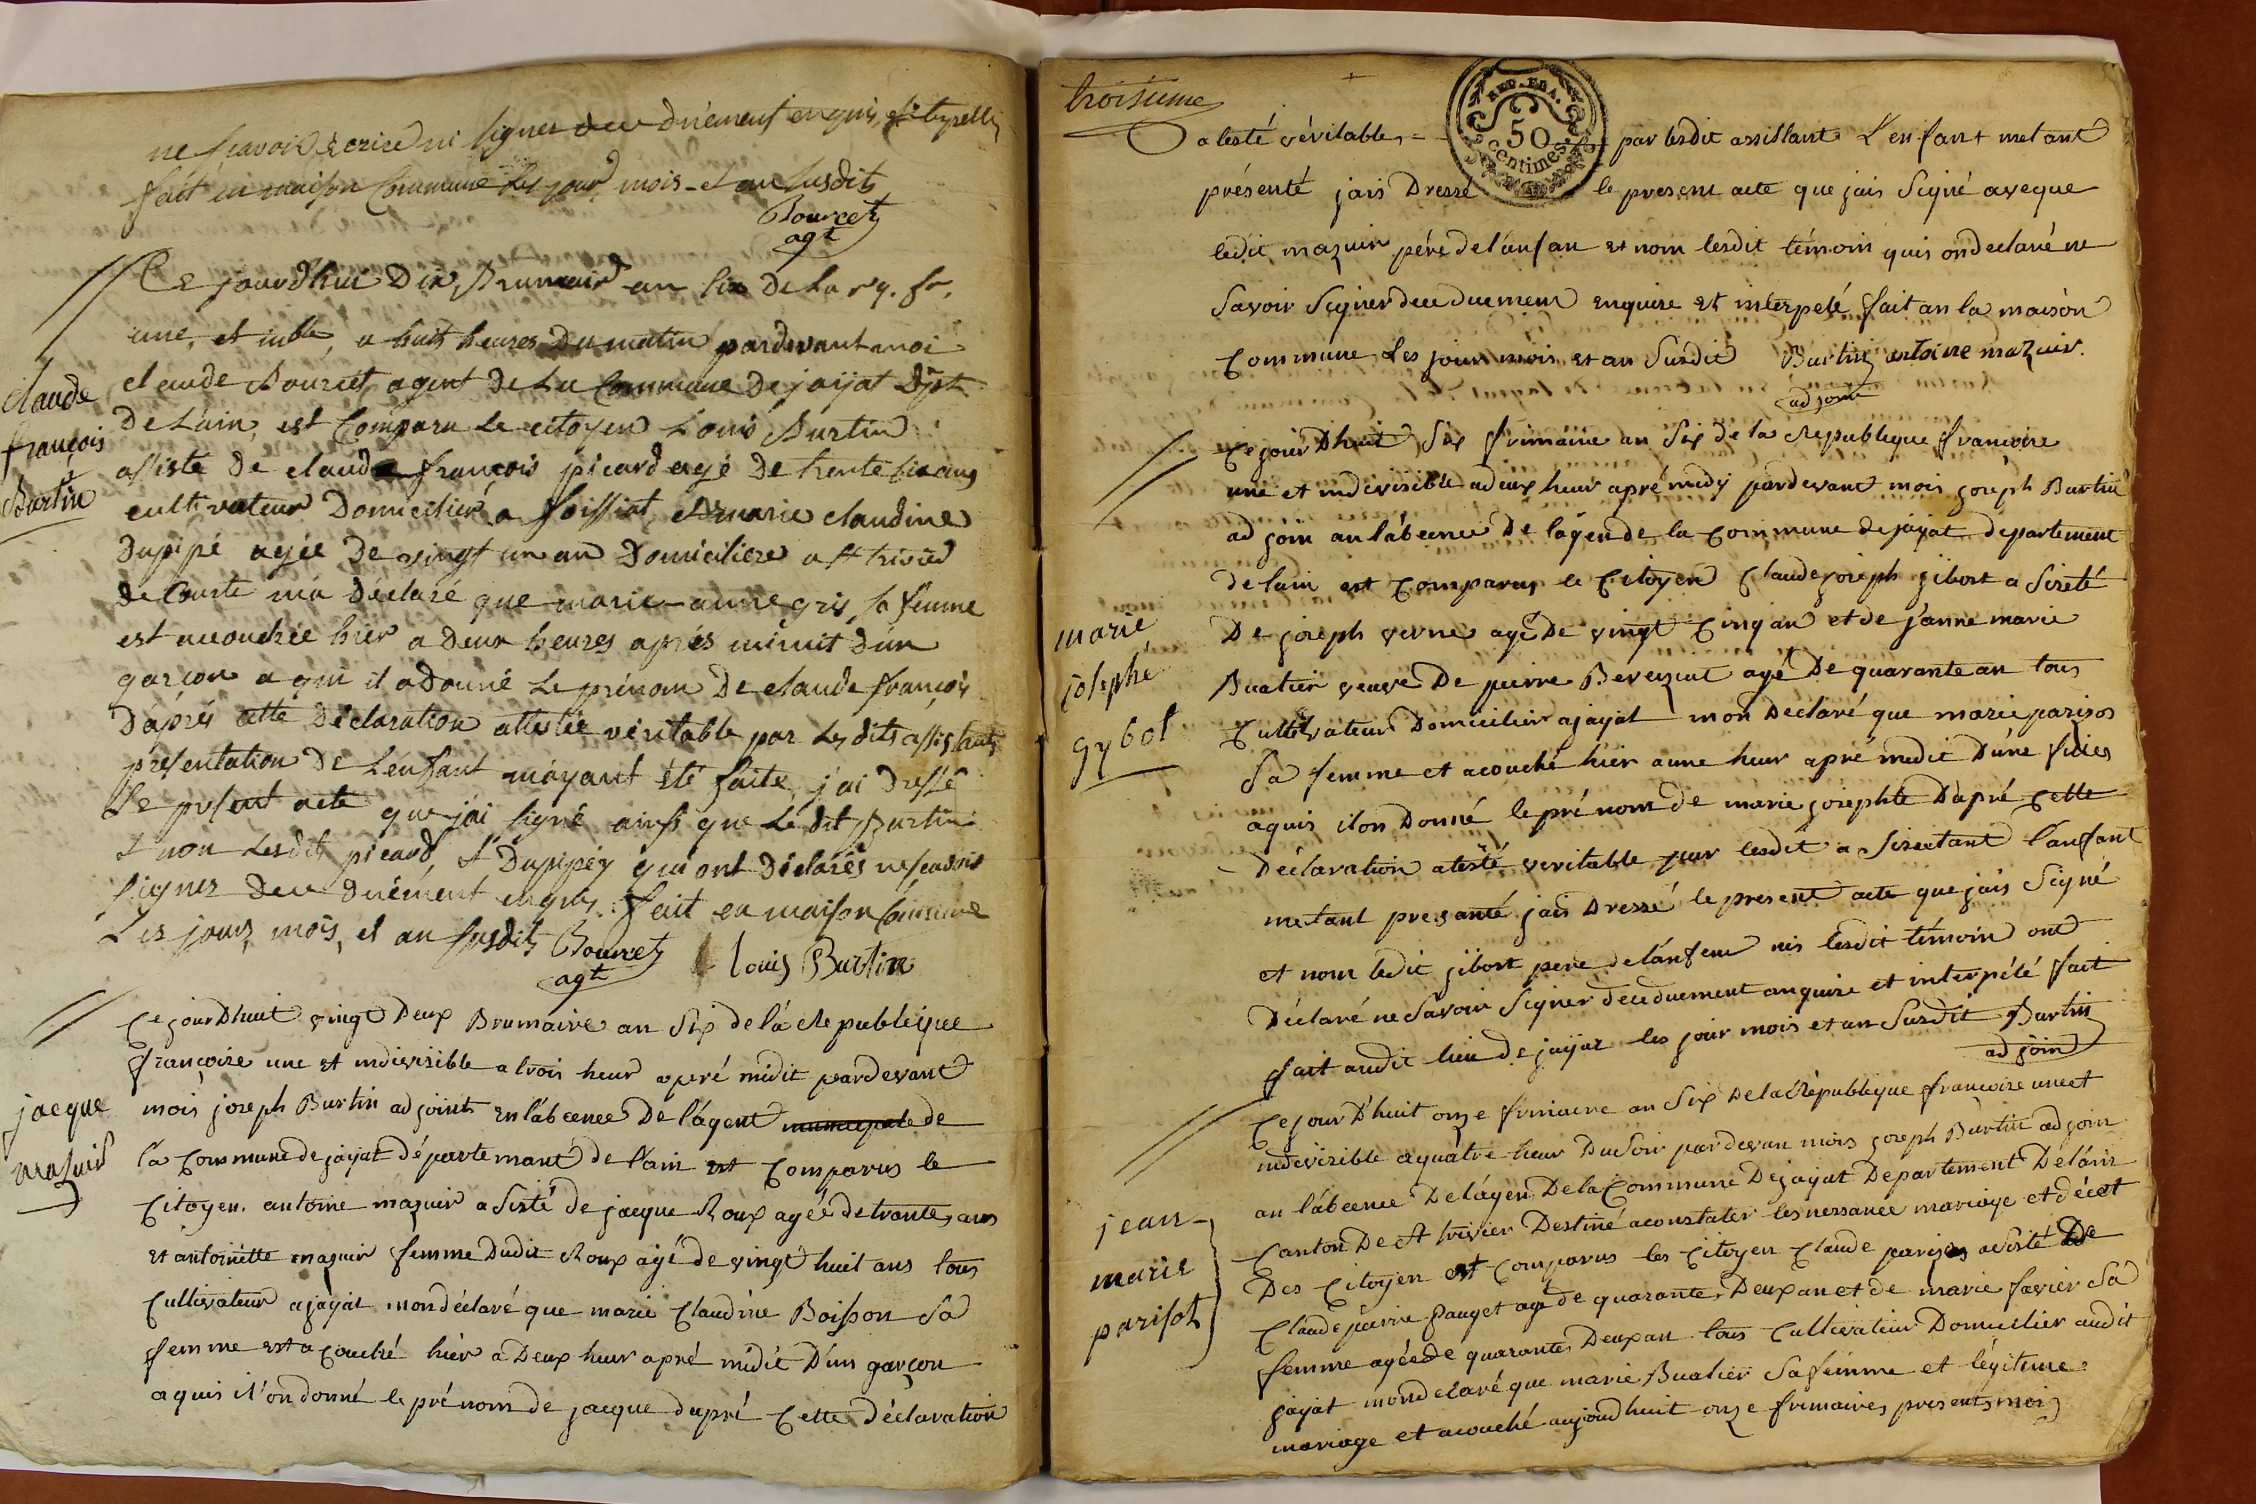 ne sçavoir ecrire ni signer de ce duement enquis, et
fait en maison Commune Les jour, mois et an susdits
Bourcet
agt
Ce jourd'hui Dix Brumaire an six De La rep. fr.
une, et indle, a huit heures Du matin pardevant moi
claude Bourcet agent De La Commune De jayat Dpt
De L'ain, est Comparu Le citoyen Louis Burtin
claude
françois
Burtin
assisté De claude françois picard agé De trente six ans
cultivateur Domicilié a foissiat, et marie claudine
Dupipé agée De vingt un an Domiciliée a St trivier
De Courte m'a Déclaré que marie-anne gris, sa femme
est accouchée hier a Deux heures aprés minuit d'un
garçon a qui il a Donné Le prénom De claude françois
D'après cette Déclaration attestée véritable par Lesdits assistants
présentation De L'enfant m'ayant été faite, j'ai dressé
Le present acte que j'ai signé ainsi que Ledit Burtin
et non Lesdits picard, et Dupipéy qui ont Déclarés ne scavoir
signer de ce duément enquis. fait en maison Commune
Les jours, mois, et an susdits Bourcet Louis Burtin
agt
Ce jourDhuit vingt Deux Brumaire an Six de lá Republique
françoise une et indivisible a trois heur apré midit pardevant
mois joseph Burtin adjoint en lábcence De lágent municipale de
jacque
mazuir
la Commune de jayat département de l'ain est Comparus le
Citoyen antoine mazuir a Sisté de jacque Roux agée de trante ans
et antoinette mazuir femme Dudit Roux agé de vingt huit ans tous
Cultivateur a jayat mon déclaré que marie Claudine Boisson Sa
femme est a Couché hiér a Deux heur apré midit D'un garçon
a quis il'on donné le pré nom de jacque d'apré Cette déclaration
troisieme
RÉP. FRA.
50
centimes
a testé véritable = par lesdit assistant L'enfant metant
présenté jais Dressé le present acte que jais Signé aveque
ledit mazuir pére de l'anfan et nom lesdit témoin quis on declaré ne
Savoir Signer de ce duement enquise et interpelé fait an la maisòn
Commune Les jour mois et an Susdit Burtin antoine mazuir.
ad join
Ce jour Dhuit Six frimaire an Six de la Republique francoise
une et indivisible a deux heur apré midy pardevant mois joseph Burtin
ad join an lábcence De lágen de la Commune de jayat departement
de lain est Comparus le Citoyen Claude joseph gibost a Sisté
marie
josephé
gybot
De joseph verne agé De vingt Cinq an et de janne marie
Buatier veuve De pierre Bereziat agé De quarante an tous
Cultivateur Domicilier a jayat mon Declaré que marie parizos
Sa femme et acouché hier a une heur apré midit D'une fillies
a quis il on Donné le pré nom de marie josephte D'apré Cette
Déclaration atesté veritable par lesdit a Sisetant l'anfant
metant presanté jais Dressé le present acte que jais Signé
et nom ledit gibost pere de lánfent nis lesdit témoin ont
Déclaré ne Savoir Signer de ce duement anquise et interpélé fait
fait audit lieu de jayat les jour mois et an Susdit Burtin
ad join
Ce jour D'huit onze frimaire an Six De la République francoise une et
indivizible a quátre heur Du Soir par devan mois joseph Burtin ad join
an lábcence De lágen De la Commune De jayat Departement De láin
jean
marie
parisot
Canton De St trivier Destiné a constater les nessance mariage et décet
Des Citoyen est Comparus les Citoyen Claude parizos a Sisté De
Claude pierre pauget agé de quarante Deux an et de marie favier Sa
femme agée de quarante Deux an tous Cultivateur Domicilier audit
jayat mon declaré que marie Buatier Sa femme et légiteme
mariage et acouché aujourdhuit onze frimaires present mois